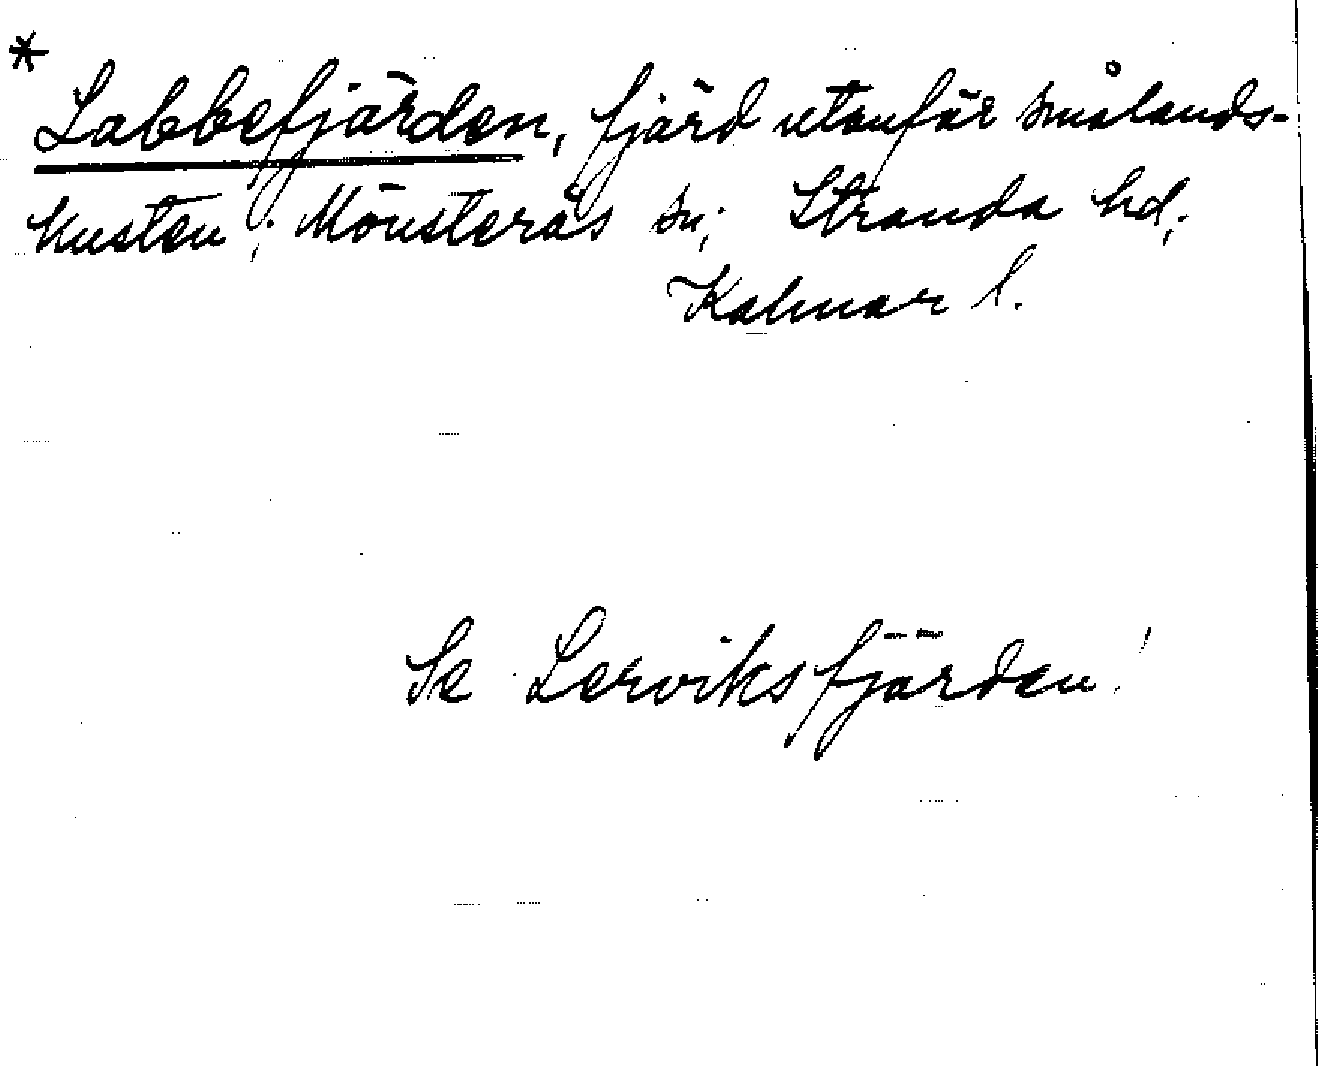 *
Labbefjärden, fjärd utanför smålands-
kusten; Mönsterås sn; Stranda hd;
Kalmar l.
Se Lerviksfjärden!